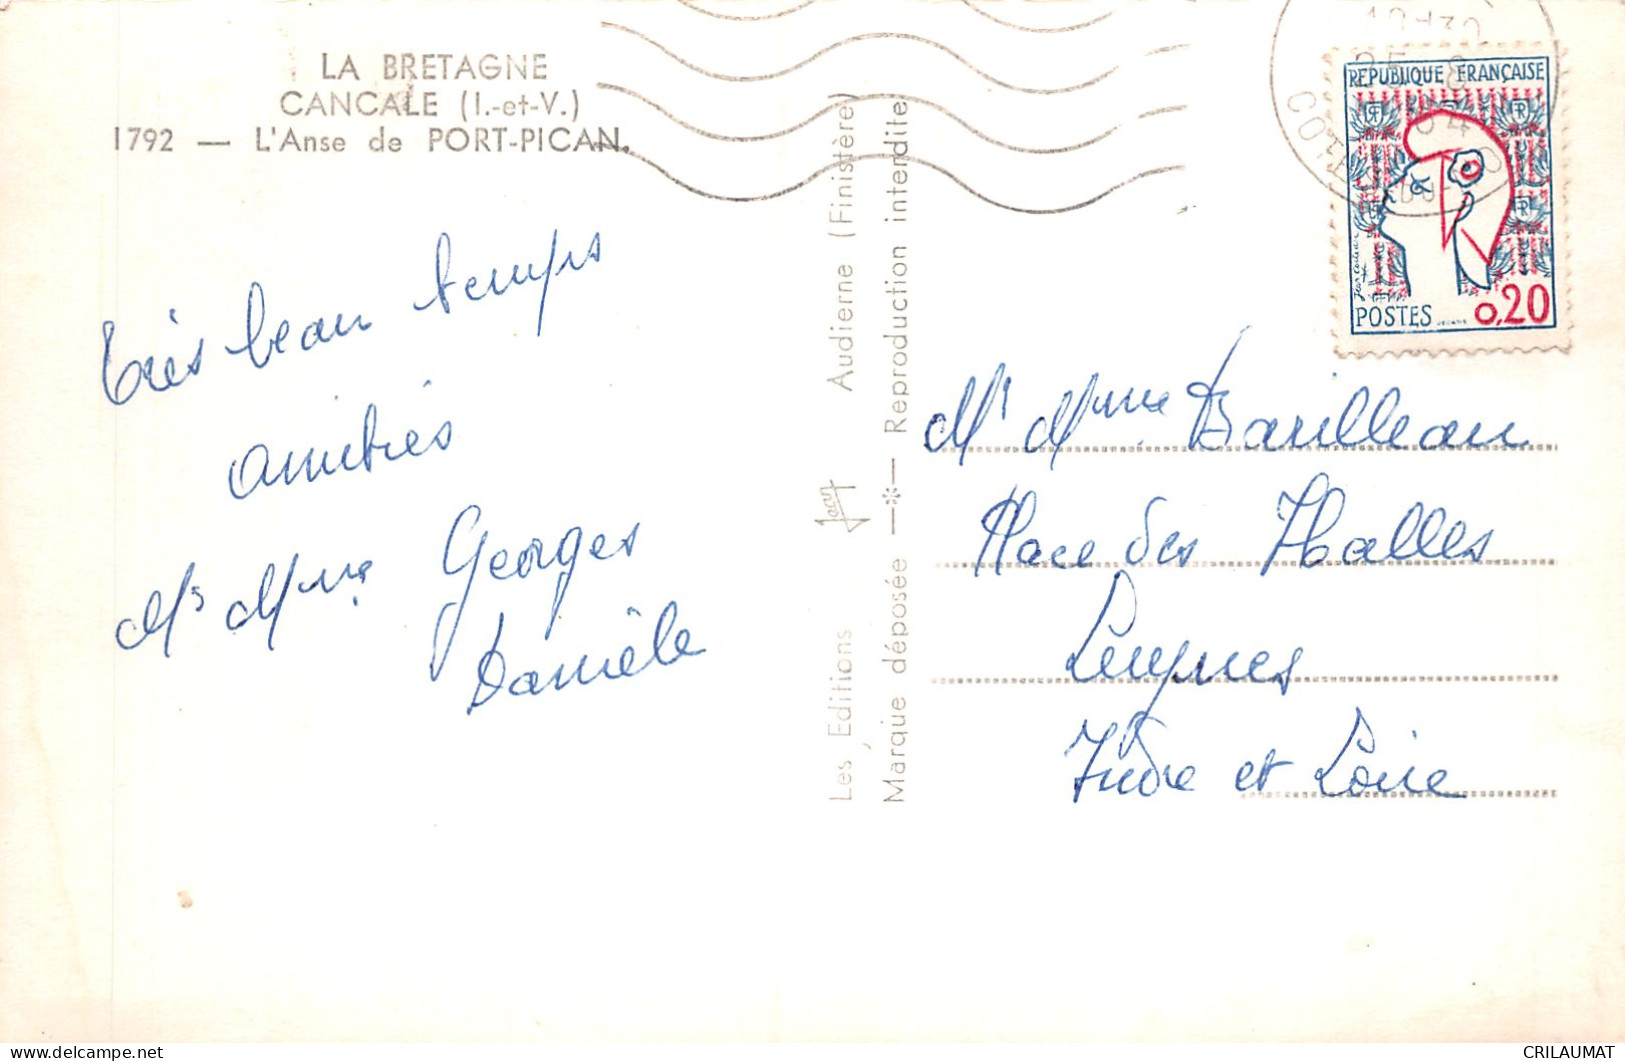 LA BRETAGNE
CANCALE (I.-et-V.)
1792 — L'Anse de PORT-PICAN.
très beau temps
amitiés
Mr Mme Georges
Danièle
Les Editions Jean Audierne (Finistère)
Marque déposée —*— Reproduction interdite
REPUBLIQUE FRANÇAISE
POSTES 0,20
Mr Mme Barilleau
Place des Halles
Luynes
Indre et Loire
CRILAUMAT